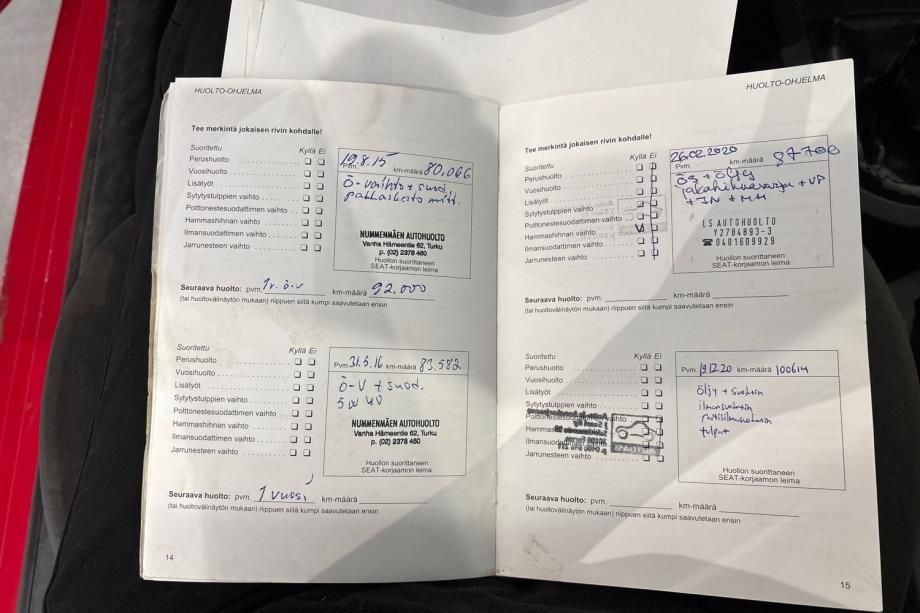 HUOLTO-OHJELMA
Tee merkintä jokaisen rivin kohdalle!
Suoritettu Kyllä Ei
Perushuolto
Vuosihuolto
Lisätyöt
Sytytystulppien vaihto
Polttonestesuodattimen vaihto
Hammashihnan vaihto
Ilmansuodattimen vaihto
Jarrunesteen vaihto
Pvm. 19.8.15 km-määrä 80.066
Ö-vaihto + suod.
pakkaskesto mitt.
NUMMENMÄEN AUTOHUOLTO
Vanha Hämeentie 62, Turku
p. (02) 2378 460
Huollon suorittaneen
SEAT-korjaamon leima
Seuraava huolto: pvm. 1v. ö-v km-määrä 92.000
(tai huoltovälinäytön mukaan) riippuen siitä kumpi saavutetaan ensin
Suoritettu Kyllä Ei
Perushuolto
Vuosihuolto
Lisätyöt
Sytytystulppien vaihto
Polttonestesuodattimen vaihto
Hammashihnan vaihto
Ilmansuodattimen vaihto
Jarrunesteen vaihto
Pvm. 31.5.16 km-määrä 83.582
Ö-V + suod.
5W40
NUMMENMÄEN AUTOHUOLTO
Vanha Hämeentie 62, Turku
p. (02) 2378 460
Huollon suorittaneen
SEAT-korjaamon leima
Seuraava huolto: pvm. 1 vuosi km-määrä
(tai huoltovälinäytön mukaan) riippuen siitä kumpi saavutetaan ensin
14
HUOLTO-OHJELMA
Tee merkintä jokaisen rivin kohdalle!
Suoritettu Kyllä Ei
Perushuolto
Vuosihuolto
Lisätyöt
Sytytystulppien vaihto
Polttonestesuodattimen vaihto
Hammashihnan vaihto
Ilmansuodattimen vaihto
Jarrunesteen vaihto
26.02.2020
Pvm. km-määrä 87706
ÖS + öljy
jakohihnasarja + VP
LS AUTOHUOLTO
Y2784893-3
☎0401609929
Huollon suorittaneen
SEAT-korjaamon leima
Seuraava huolto: pvm. km-määrä
(tai huoltovälinäytön mukaan) riippuen siitä kumpi saavutetaan ensin
Suoritettu Kyllä Ei
Perushuolto
Vuosihuolto
Lisätyöt
Sytytystulppien vaihto
Polttonestesuodattimen vaihto
Ilmansuodattimen
Jarrunesteen vaihto
Pvm. 19.12.20 km-määrä 100614
öljy + suodatin
ilmansuodatin
raitisilmasuodatin
tulpat
Huollon suorittaneen
SEAT-korjaamon leima
Seuraava huolto: pvm. km-määrä
(tai huoltovälinäytön mukaan) riippuen siitä kumpi saavutetaan ensin
15